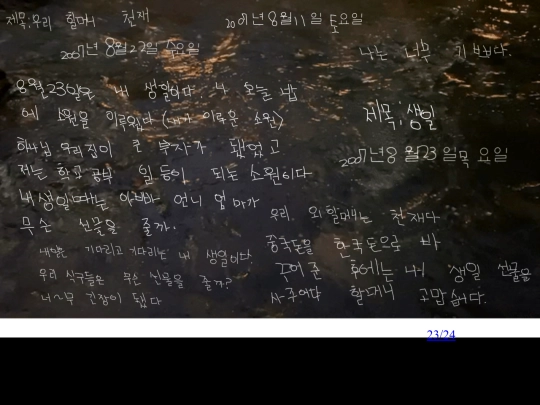 제목:우리 할머니 천재
2007년 8월 11일 토요일
2007년 8월 22일 수요일
나는 너무 기쁘다.
8월 23일은 내 생일이다 나 오늘 밤
에 소원을 이루웠다 (내가 이룬 소원)
하나님 우리집이 큰 부자가 됐었고
저는 학교 공부 일등이 되는 소원이다
내 생일때는 아빠 언니 엄마가
무슨 선물을 줄까.
제목;생일
2007년 8월 23일 목요일
우리 외할머니는 천재다
중국돈을 한국돈으로 바
꾸어 준 후에는 내 생일 선물을
사주어다 할머니 고맙습니다.
내일은 기다리고 기다리는 내 생일이다.
우리 식구들은 무슨 선물을 줄까?
너~무 긴장이 됐다
23/24